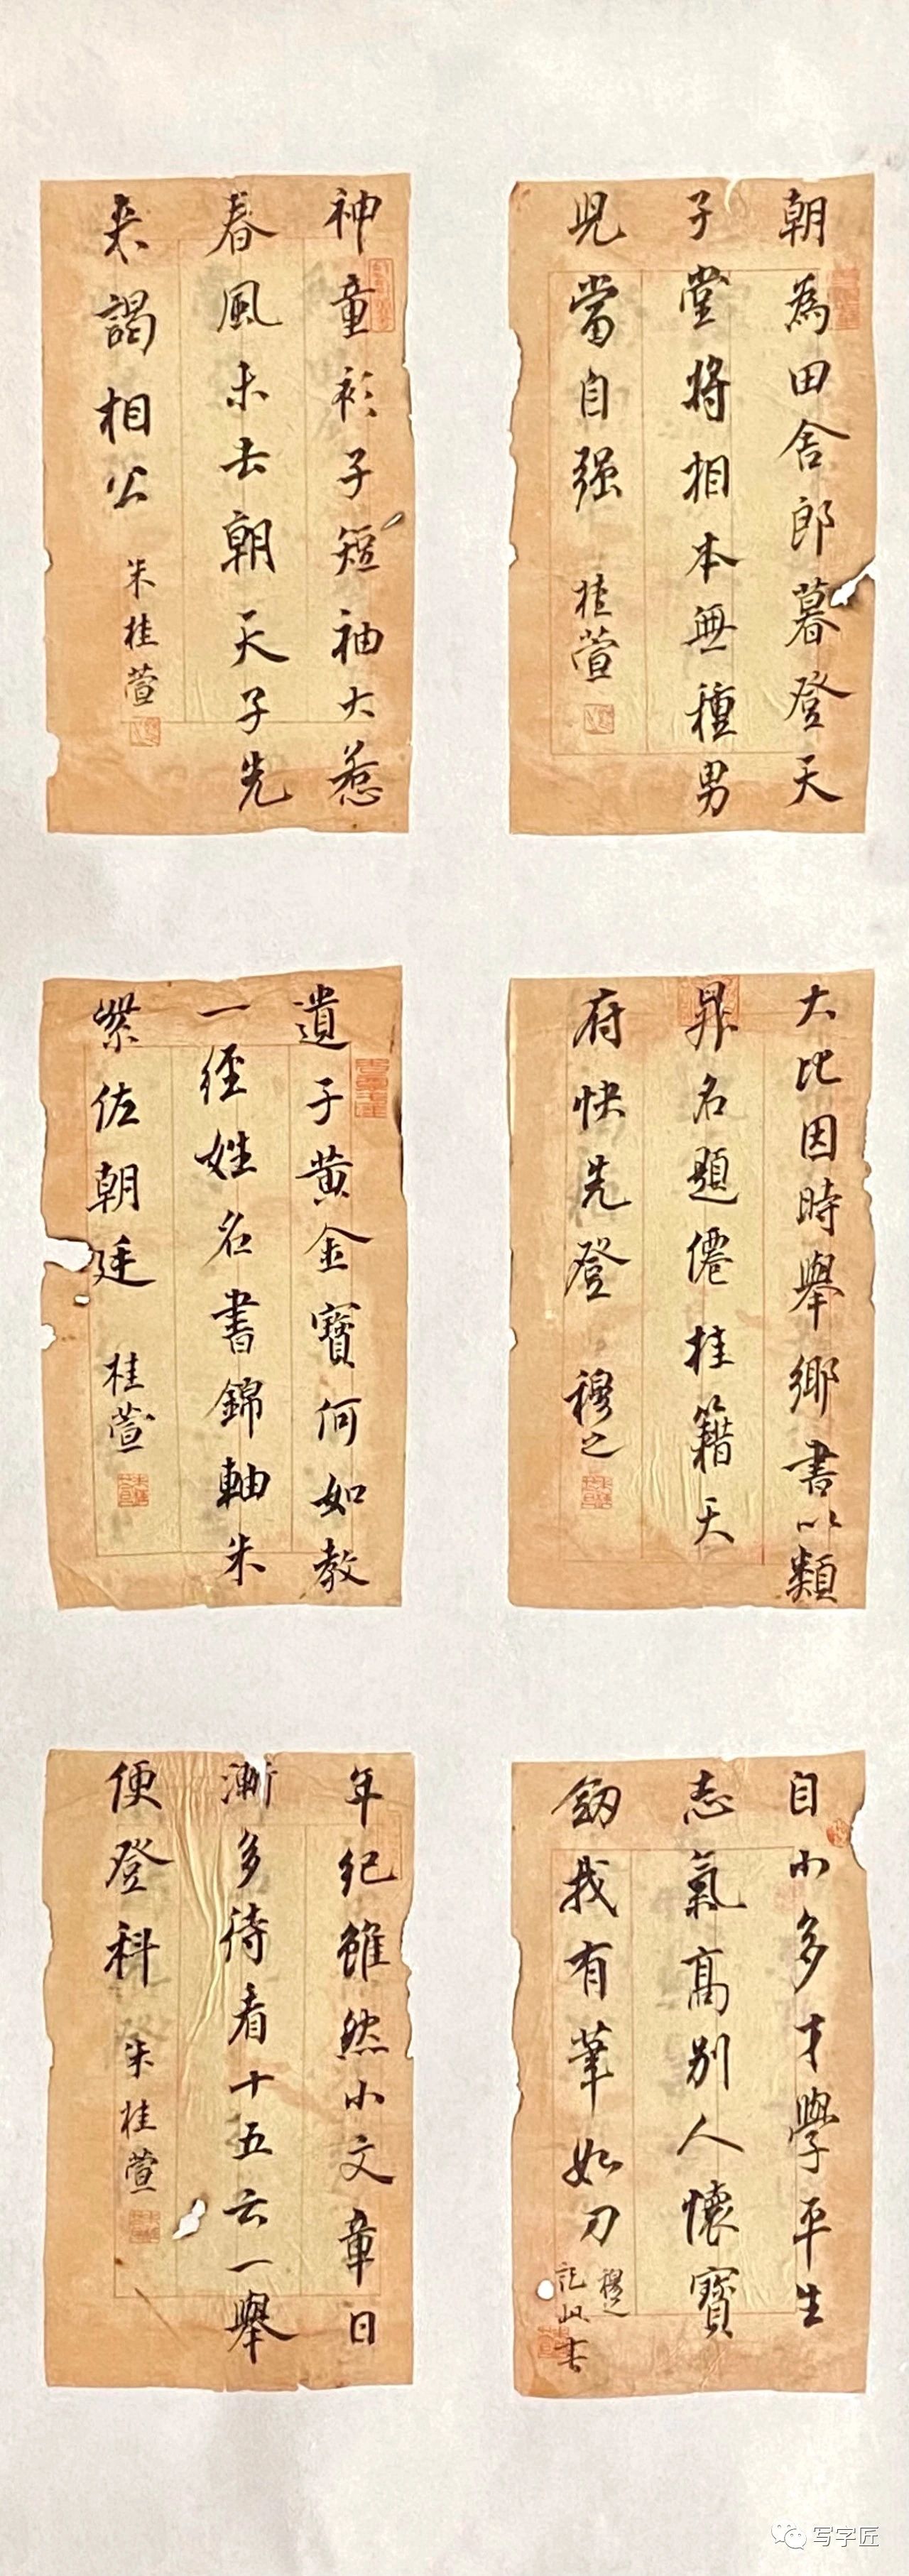 朝為田舍郎暮登天
子堂將相本無種男
兒當自强
桂萱
神童衫子短袖大惹
春風未去朝天子先
來謁相公
朱桂萱
大比因時舉鄉書以類
昇名題僊桂籍天
府快先登
穆之
遺子黄金寶何如教
一經姓名書錦軸朱
紫佐朝廷
桂萱
自小多才學平生
志氣高别人懷寶
劔我有筆如刀
穆之
記此書
年紀雖然小文章日
漸多待看十五云一舉
便登科
朱桂萱
写字匠